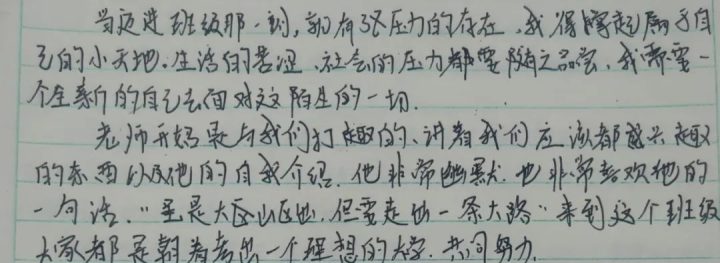 当迈进班级那一刻,就有了压力的存在,我得撑起属于自
己的小天地.生活的苦涩,社会的压力都要随之品尝,我需要一
个全新的自己去面对这陌生的一切.
老师开始是与我们打趣的、讲着我们应该都感兴趣
的东西以及他的自我介绍.他非常幽默.也非常喜欢他的
一句话."虽是大区山区出,但要走出一条大路"来到这个班级
大家都是朝着考出一个理想的大学.共同努力.